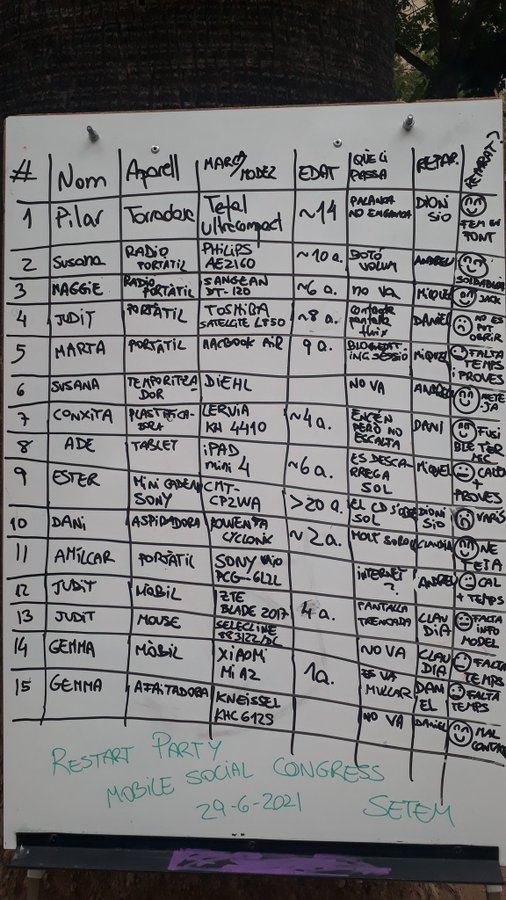 # Nom Aparell MARCA/MODEL EDAT QUÈ LI PASSA REPAR. REPARAT?
1 Pilar Torradora Tefal Ultracompact ~14 PALANCA NO ENGANXA DIONISIO FEM UN PONT
2 SUSANA RADIO PORTÀTIL PHILIPS AE2160 ~10 a. BOTÓ VOLUM ANDREU SOLDADURA
3 MAGGIE RADIO PORTÀTIL SANGEAN DT-120 ~6 a. NO VA MIQUEL JACK
4 JUDIT PORTÀTIL TOSHIBA SATELLITE L850 ~8 a. pantalla DANIEL NO ES POT OBRIR
5 MARTA PORTÀTIL MACBOOK AIR 9 a. MIQUEL FALTA TEMPS i PROVES
6 SUSANA TEMPORITZADOR DIEHL NO VA ANDREU
7 CONXITA PLASTIFICADORA LERVIA KH 4410 ~4 a. ENCÉN PERÒ NO ESCALFA DANI FUSIBLE TER MIC
8 ADE TABLET iPAD mini 4 ~6 a. ES DESCARREGA SOL MIQUEL + PROVES
9 ESTER MINI CADENA SONY CMT-CP2WA >20 a. EL CD SOL DIONISIO VARIS
10 DANI ASPIRADORA ROWENTA CYCLONIC ~2 a. MOLT SOROLL CLAUDIA NETEJA
11 AMILCAR PORTÀTIL SONY VAIO PCG-6L2L INTERNET? ANDREU CAL + TEMPS
12 JUDIT MÒBIL ZTE BLADE 2017 4 a. PANTALLA TRENCADA CLAUDIA FALTA INFO MODEL
13 JUDIT MOUSE SELECLINE NO VA CLAUDIA FALTA TEMPS
14 GEMMA MÒBIL XIAOMI Mi A2 1 a. ES VA MULLAR DANIEL FALTA TEMPS
15 GEMMA AFAITADORA KNEISSEL KHC6123 NO VA DANIEL MAL CONTACTE
RESTART PARTY
MOBILE SOCIAL CONGRESS
29-6-2021 SETEM